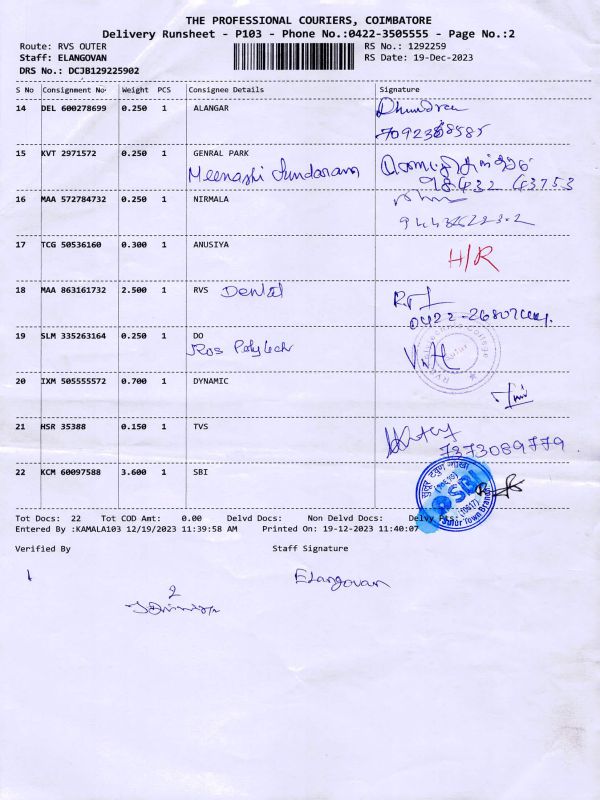 THE PROFESSIONAL COURIERS, COIMBATORE
Delivery Runsheet - P103 - Phone No.:0422-3505555 - Page No.:2
Route: RVS OUTER RS No.: 1292259
Staff: ELANGOVAN RS Date: 19-Dec-2023
DRS No.: DCJB129225902
S No Consignment No Weight PCS Consignee Details Signature
14 DEL 600278699 0.250 1 ALANGAR
15 KVT 2971572 0.250 1 GENRAL PARK
Meenashi Sundaram
98432 43753
16 MAA 572784732 0.250 1 NIRMALA
17 TCG 50536160 0.300 1 ANUSIYA H/R
18 MAA 863161732 2.500 1 RVS Dental
19 SLM 335263164 0.250 1 DO
Polytech
20 IXM 505555572 0.700 1 DYNAMIC
21 HSR 35388 0.150 1 TVS
7373089779
22 KCM 60097588 3.600 1 SBI
SBI
Tot Docs: 22 Tot COD Amt: 0.00 Delvd Docs: Non Delvd Docs: Delvy
Entered By :KAMALA103 12/19/2023 11:39:58 AM Printed On: 19-12-2023 11:40:07
Verified By Staff Signature
1 2 Elangovan